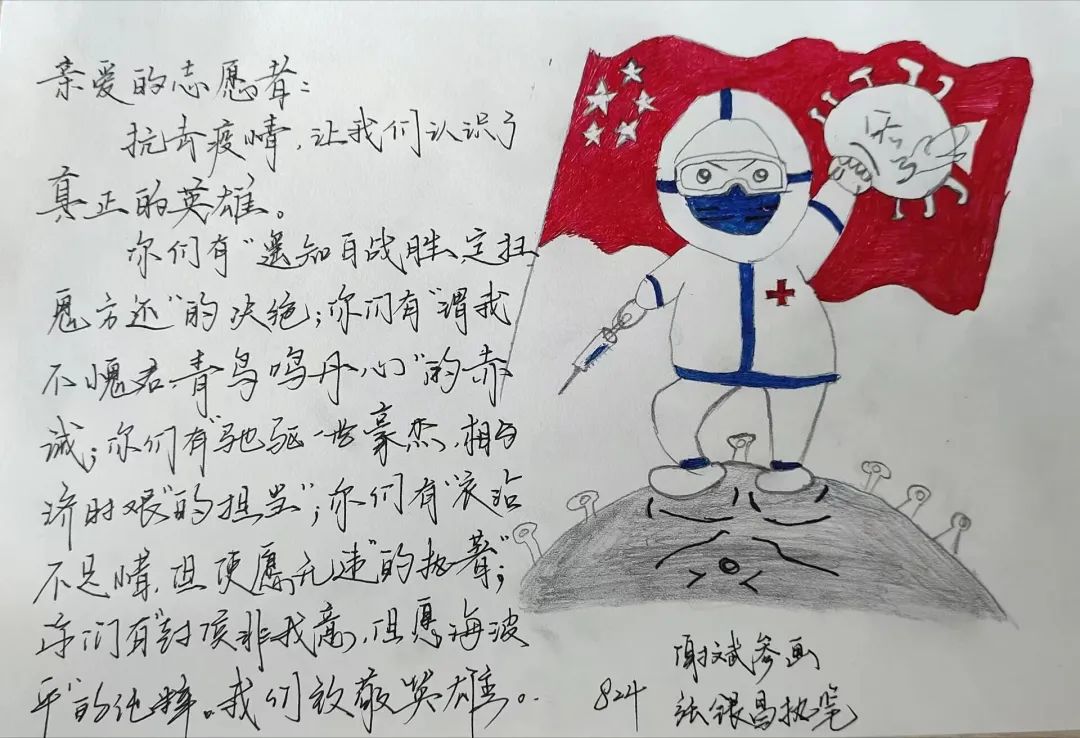 亲爱的志愿者：
抗击疫情，让我们认识了
真正的英雄。
你们有“遥知百战胜，定扫
鬼方还”的决绝；你们有“谓我
不愧君，青鸟鸣丹心”的赤
诚；你们有“驰驱一世豪杰，相与
济时艰”的担当”；你们有“衣沾
不足惜，但使愿无违”的执着”；
你们有“封侯非我意，但愿海波
平”的纯粹。我们致敬英雄。
824
谢斌参画
张银昌执笔